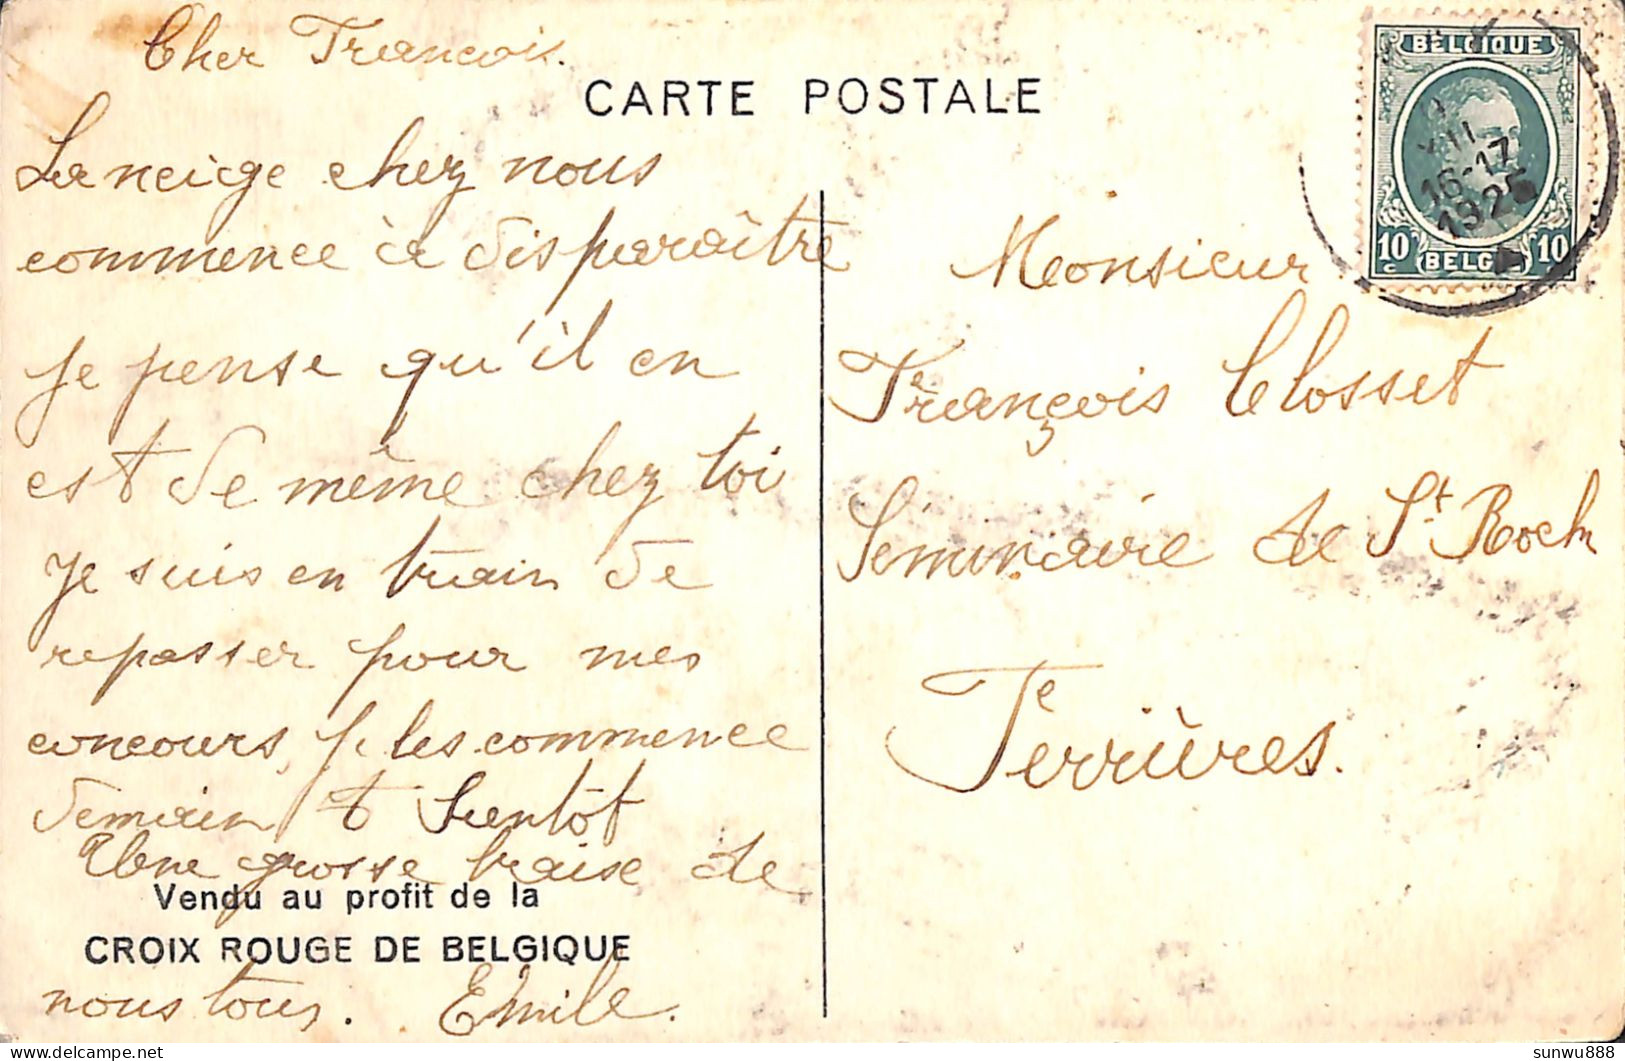 Cher François.
CARTE POSTALE
La neige chez nous
commence à disparaître
je pense qu'il en
est de même chez toi
je suis en train de
repasser pour mes
concours, je les commence
demain à bientôt
Une grosse baise de
Vendu au profit de la
CROIX ROUGE DE BELGIQUE
nous tous. Emile.
BELGIQUE
16-17
1925
10 c BELGIË 10 c
Monsieur
François Closset
Séminaire de St. Roch
Ferrières.
sunwu888